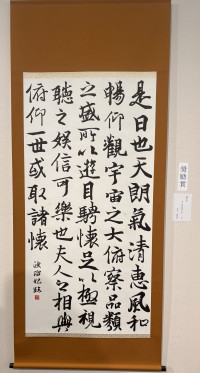 是日也天朗氣清惠風和
暢仰觀宇宙之大俯察品類
之盛所以遊目騁懷足以極視
聽之娛信可樂也夫人之相與
俯仰一世或取諸懷
奨励賞